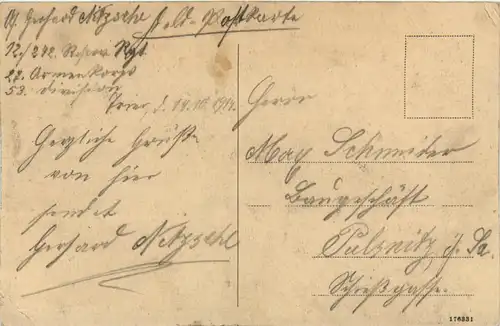 Gerhard Nitzsche Feld-Postkarte
12/242. Reserv. Rgt.
27. Armeekorps
53. Division
Trier, d. 14.10.1914.
Herzliche Grüße
von hier
sendet
Gerhard Nitzsche
Herrn
Max Schneider
Baugeschäft
Pulsnitz, i. Sa.
Schießgasse.
176331